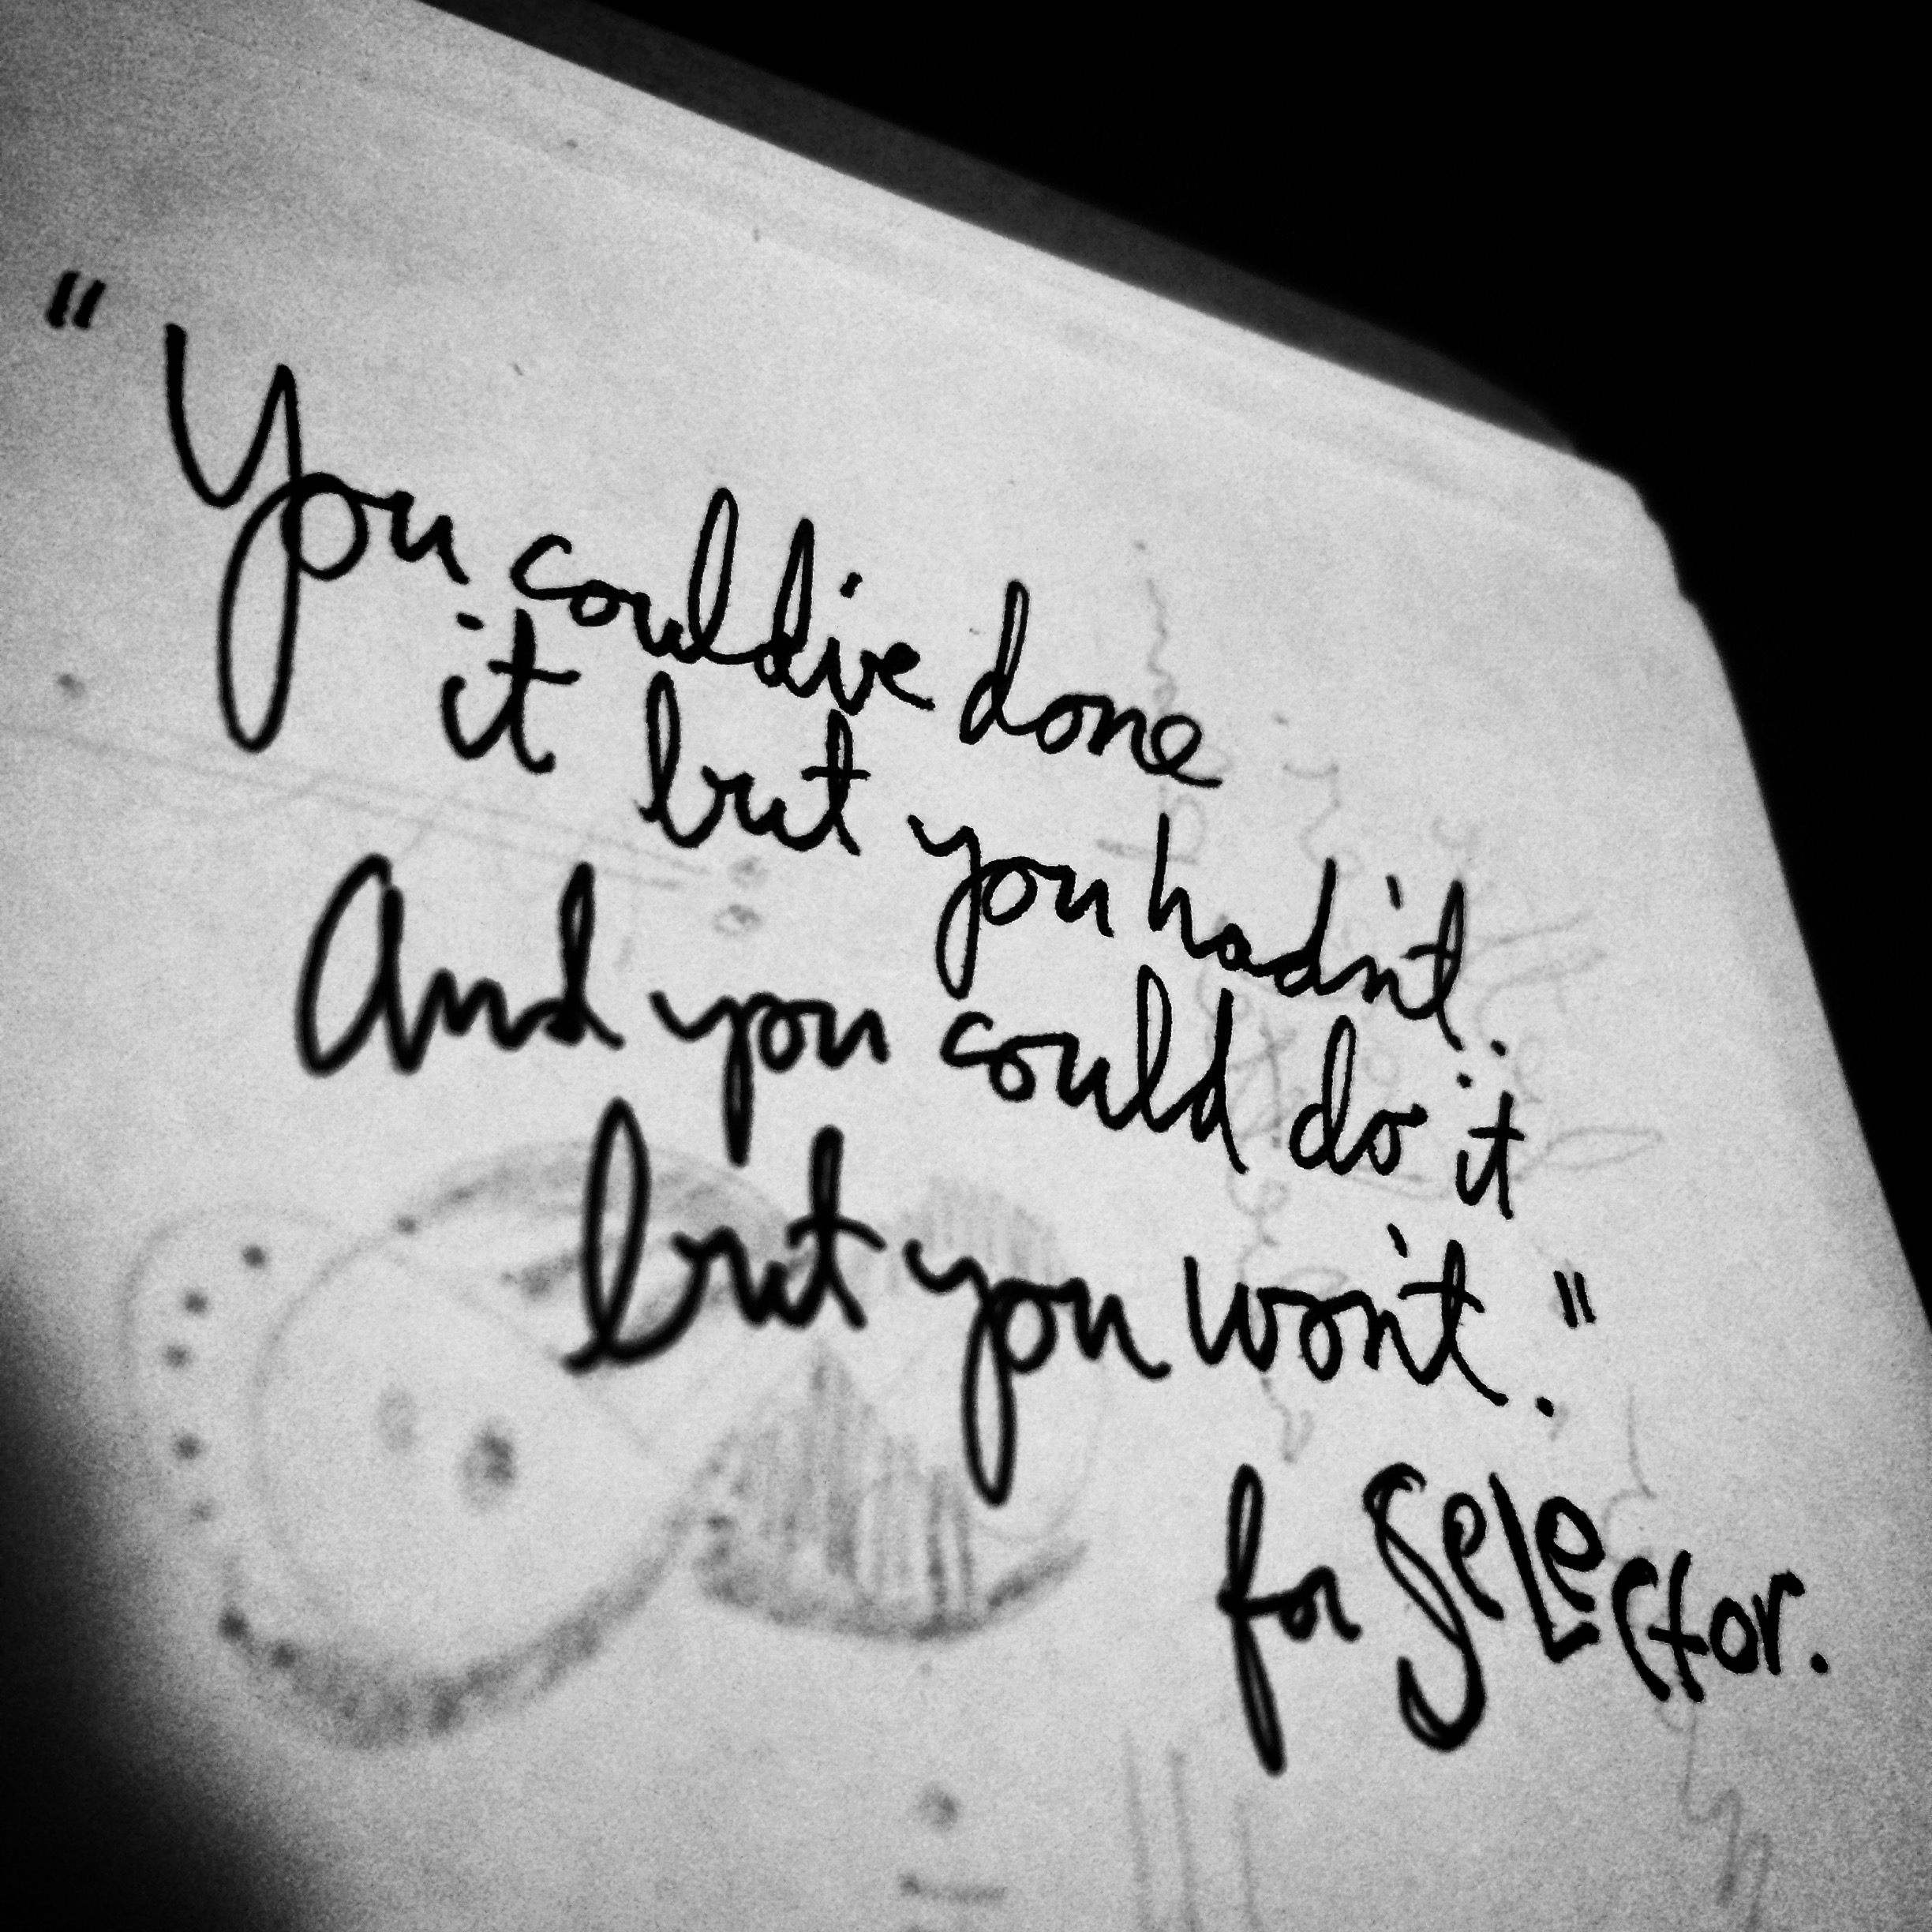 "You could've done
it but you hadn't.
And you could do it
but you won't."
for SeLector.